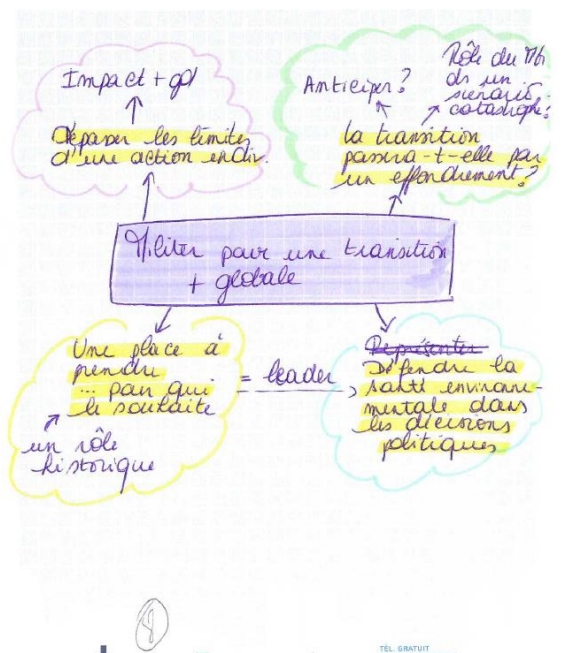 Impact + gd
Dépasser les limites
d'une action indiv.
Anticiper?
Rôle du
ds un
scénario
catastrophe?
la transition
passera-t-elle par
un effondrement?
Militer pour une transition
+ globale
Une place à
prendre
... par qui
le souhaite
un rôle
historique
= leader
Représenter
Défendre la
santé environne-
mentale dans
les décisions
politiques
TÉL. GRATUIT